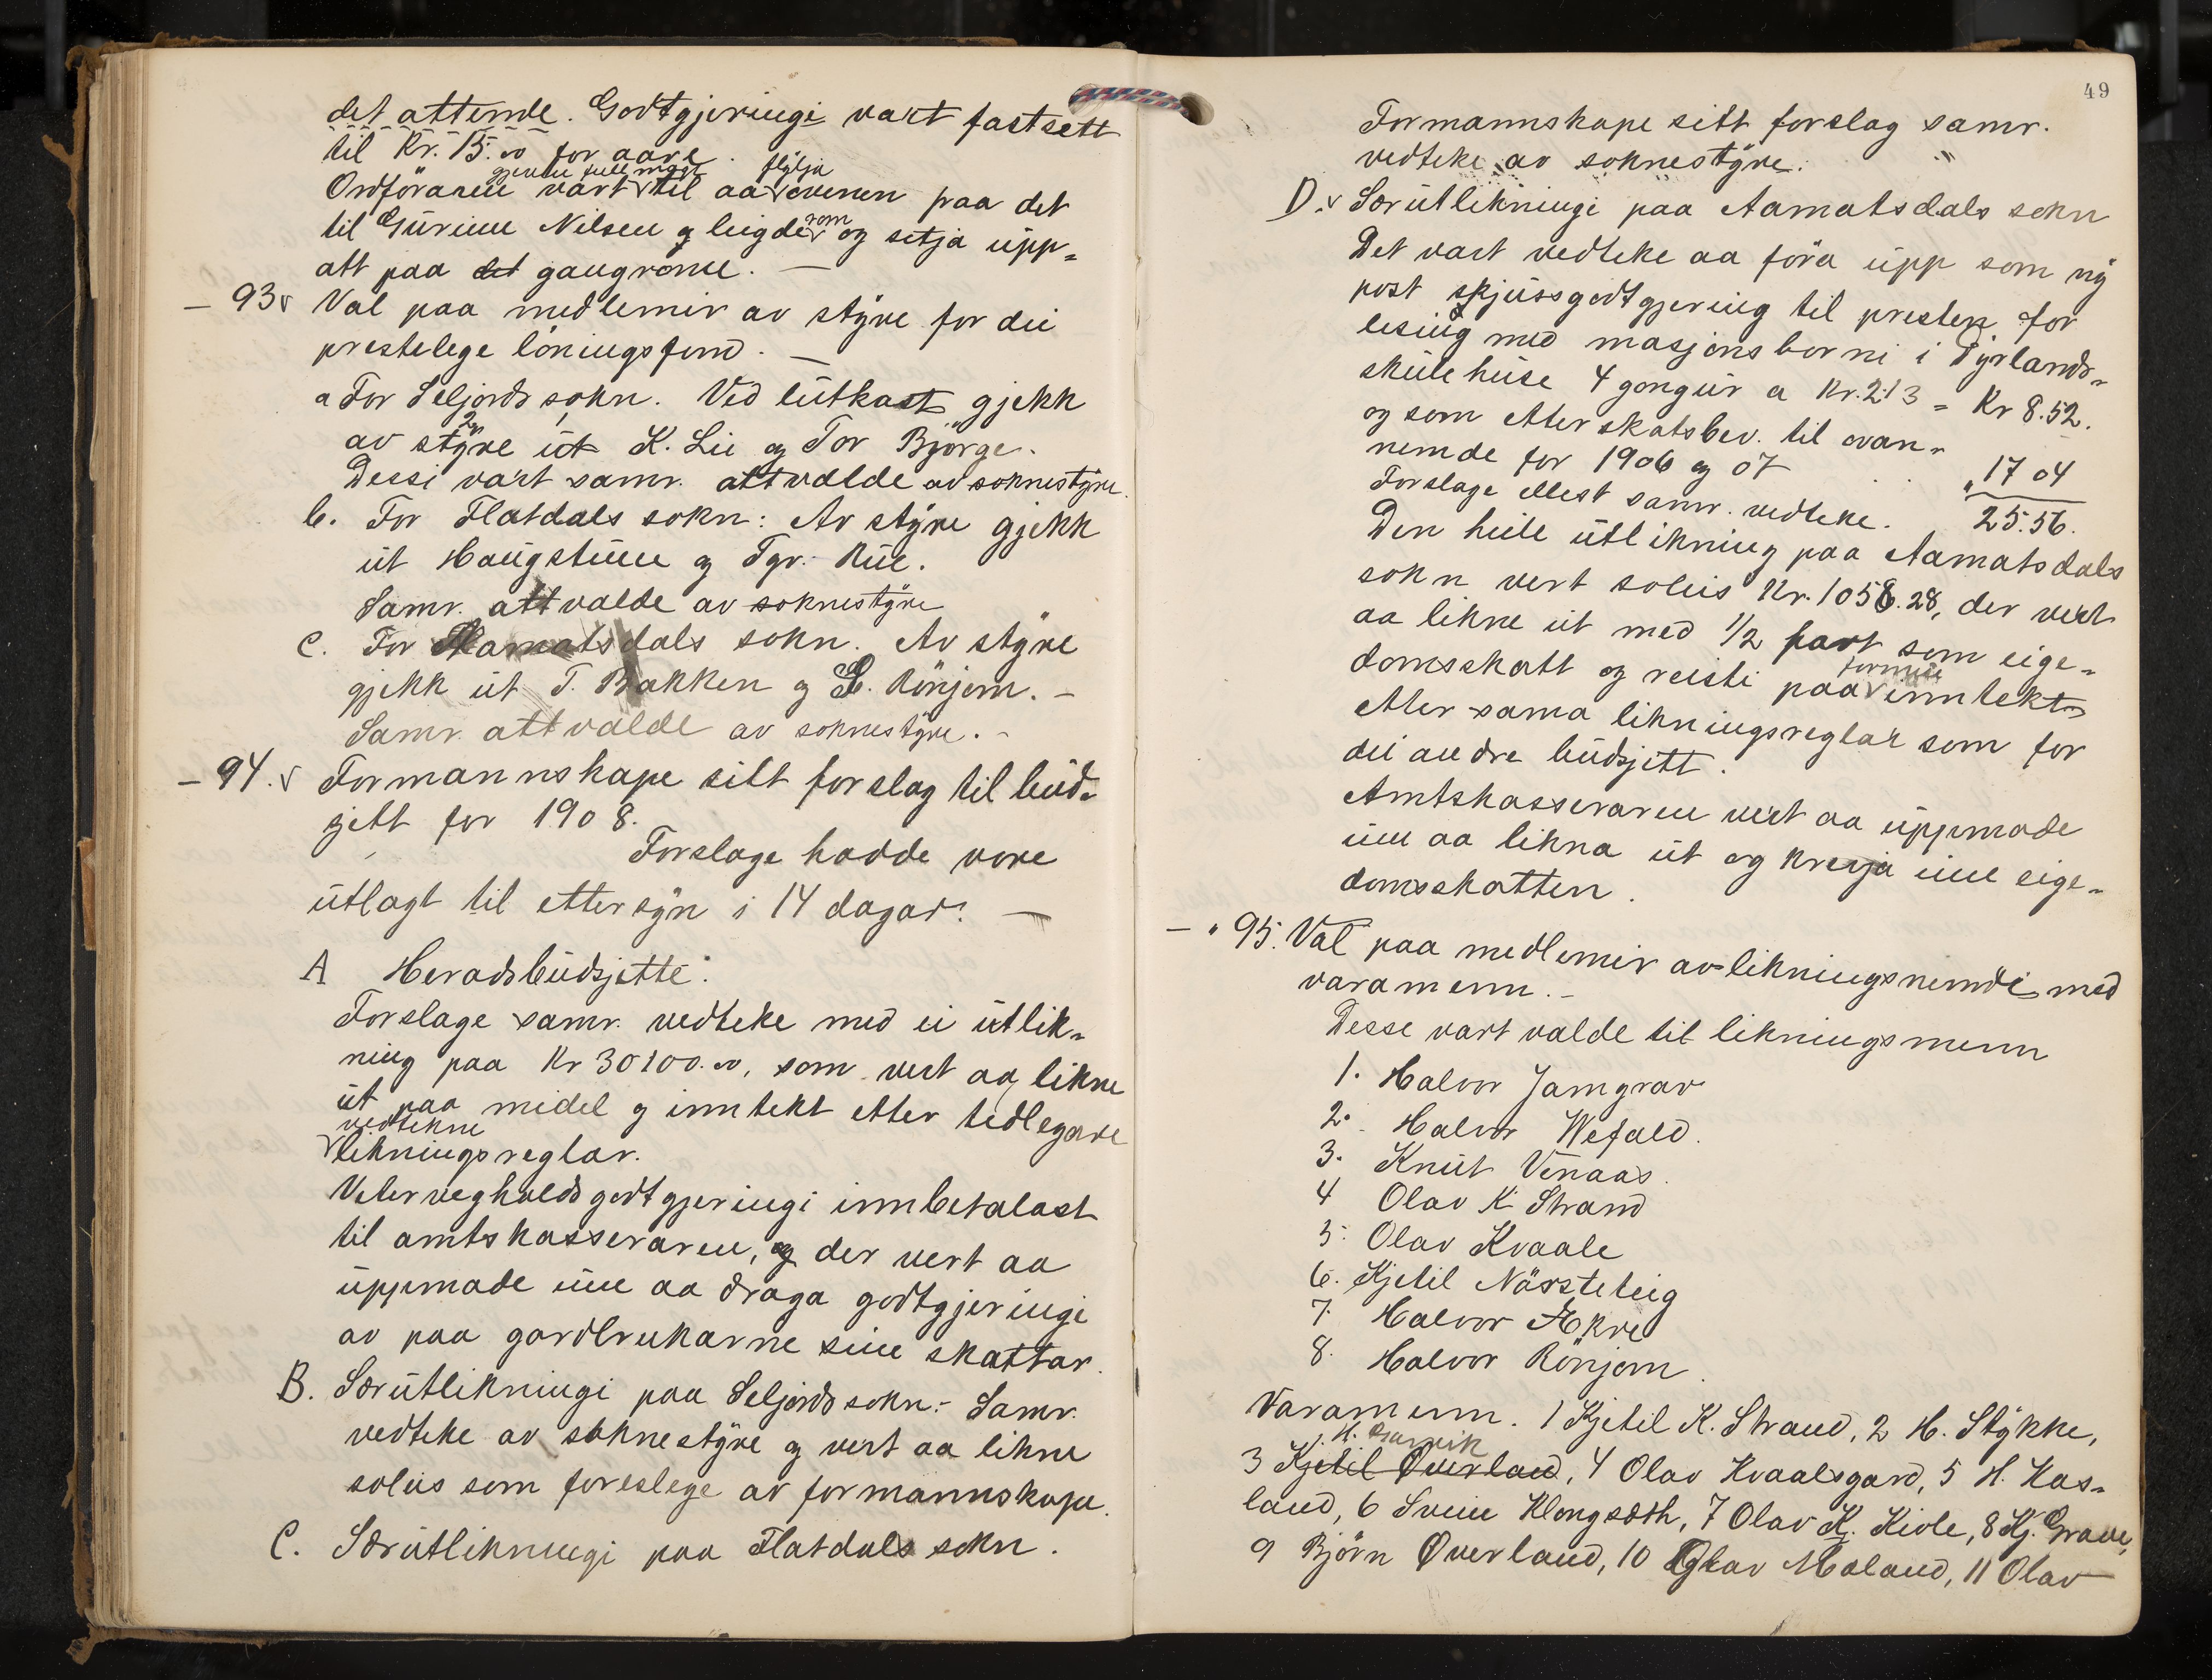 det attende. Godtgjeringi vart fastsett
til Kr. 15.00 for aare.
gjeven full magt flytja
Ordføraren vart til aa ovnen paa det
til Gurine Nilsen og leigde rom og setja upp-
att paa det gangrome. —
— 93 Val paa medlemir av styre for dei
prestelege løningsfond. —
a For Seljords sokn. Ved lutkast gjekk
av styre ut K. Lie og Tor Bjørge.
Dessi vart samr. attvalde av soknestyre.
b. For Flatdals sokn: Av styre gjekk
ut Haugstune og Tgr. Rue.
Samr. attvalde av soknestyre
c. For Aamatsdals sokn. Av styre
gjekk ut T. Bakken og L. Rönjom. —
Samr. attvalde av soknestyre. —
— 94. Formannskape sitt forslag til bud-
sjett for 1908.
Forslage hadde vore
utlagt til ettersyn i 14 dagar. —
A Heradsbudsjette.
Forslage samr. vedteke med ei utlik-
ning paa Kr 30100.00, som vert aa likne
ut paa midel og inntekt etter tidlegare
vedtekne
likningsreglar.
Vetervegholdsgodtgjeringi innbetalast
til amtskasseraren, og der vert aa
uppmode um aa draga godtgjeringi
av paa gardbrukarne sine skattar.
B. Særutlikningi paa Seljords sokn. - Samr.
vedteke av soknestyre og vert aa likne
soleis som foreslege av formannskape.
C. Særutlikningi paa Flatdals sokn.
49
Formannskape sitt forslag samr.
vedteke av soknestyre. "
D. Særutlikningi paa Aamatsdals sokn
Det vart vedteke aa föra upp som ny
post skjussgodtgjering til presten for
lesing med masjonsborni i Tyrlands-
skulehuse 4 gongur a Kr. 2.13 = Kr 8.52.
og som etterskotsbev. til ovan-
nemde for 1906 og 07 . . " 17 04
Forslage ellest samr. vedteke. 25.56.
Den heile utlikning paa Aamatsdals
sokn vert soleis Kr. 1056.28, der vert
aa likne ut med 1/2 part som eige-
formue
domsskatt og reisti paa inntekt
etter sama likningsreglar som for
dei andre budsjett.
Amtskasseraren vert aa uppmode
um aa likna ut og krevja inn eige-
domsskatten.
— " 95. Val paa medlemir av likningsnemdi med
varamenn. —
Desse vart valde til likningsmenn
1. Halvor Jamgrav
2. Halvor Wefald.
3. Knut Vinaas.
4 Olav K Strand
5. Olav Kvaale
6. Kjetil Nässteteig
7. Halvor Ækre
8. Halvor Rönjom.
Varamenn. 1 Kjetil K. Strand, 2 H. Stykke,
3 Kjetil Øverland, 4 Olav Kvaalsgard, 5 H. Has-
land, 6 Svein Klongseth, 7 Olav K. Kivle, 8 Kj. Grave,
9 Björn Överland, 10 Olav Moland, 11 Olav